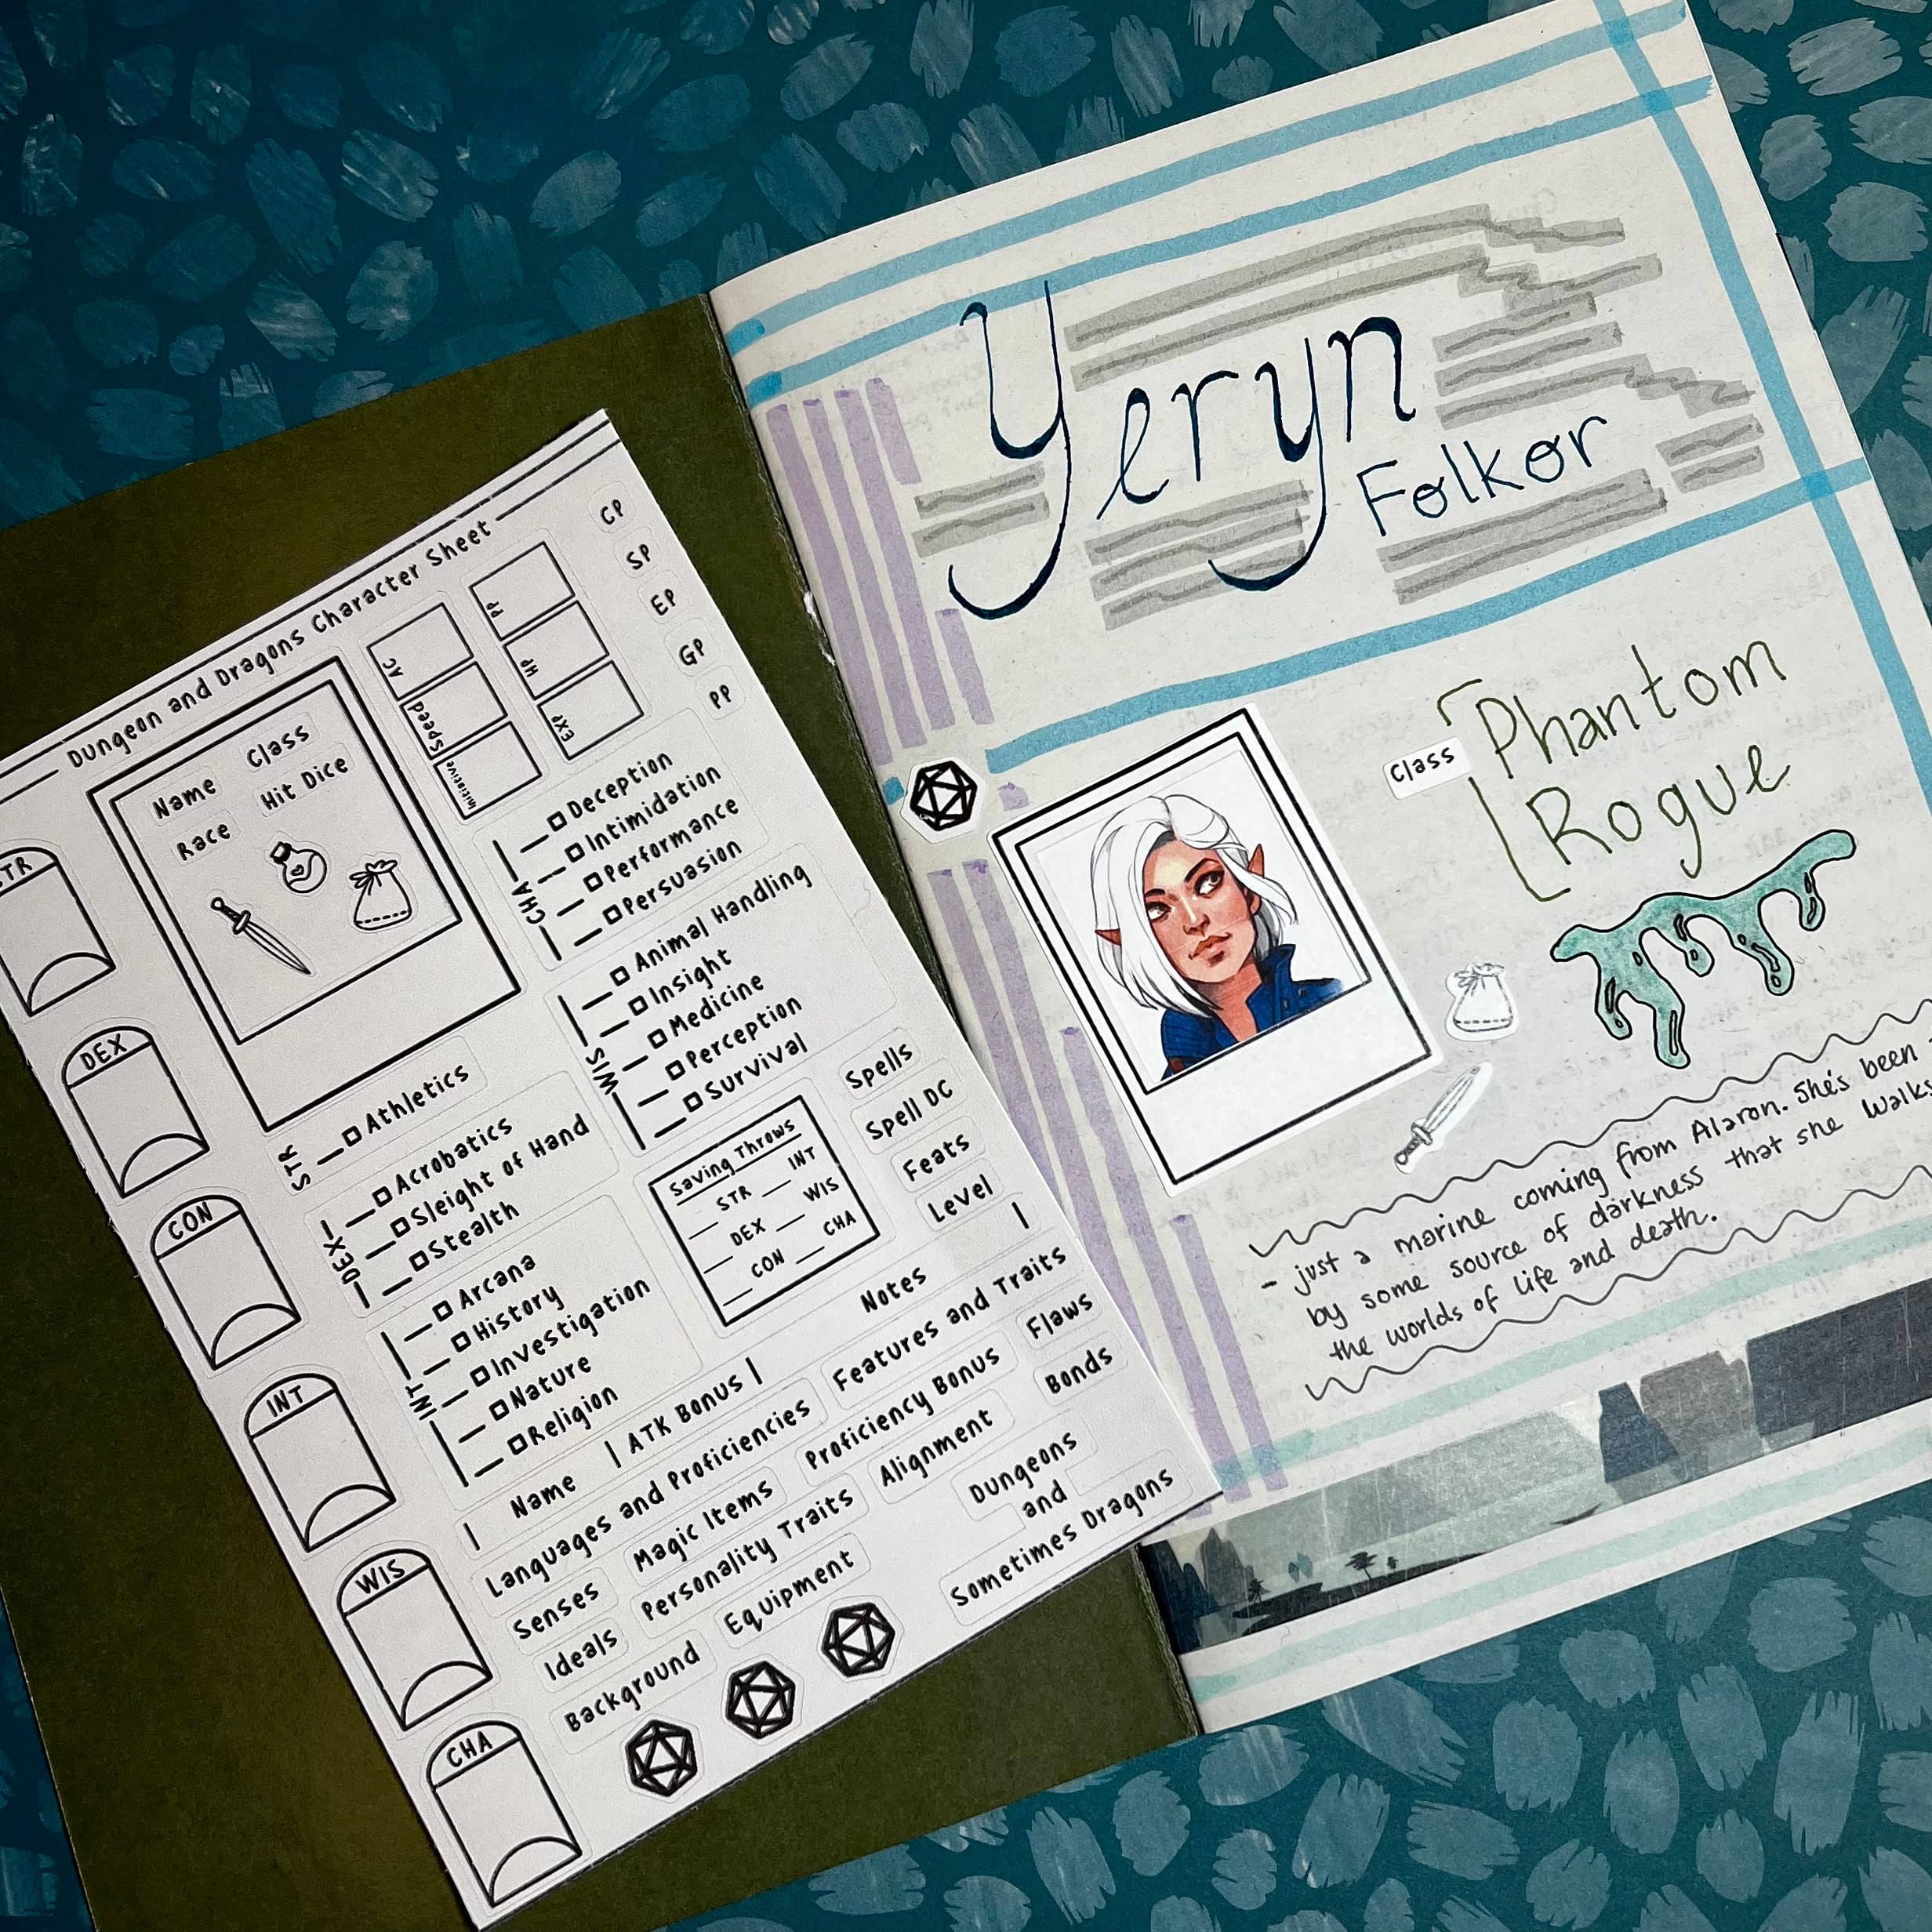 Dungeon and Dragons Character Sheet
CP
SP
EP
GP
PP
Name
Class
Race
Hit Dice
AC
Speed
Initiative
PP
HP
EXP
STR
DEX
CON
INT
WIS
CHA
STR
Athletics
DEX
Acrobatics
Sleight of Hand
Stealth
INT
Arcana
History
Investigation
Nature
Religion
CHA
Deception
Intimidation
Performance
Persuasion
WIS
Animal Handling
Insight
Medicine
Perception
Survival
Saving Throws
STR INT
DEX WIS
CON CHA
Spells
Spell DC
Feats
Level
Name | ATK Bonus | Notes
Languages and Proficiencies
Features and Traits
Senses
Magic Items
Proficiency Bonus
Flaws
Ideals
Personality Traits
Alignment
Bonds
Background
Equipment
Dungeons
and
Sometimes Dragons
Yeryn
Folkor
Class
Phantom
Rogue
- just a marine coming from Alaron. She's been
by some source of darkness that she walks
the worlds of life and death.